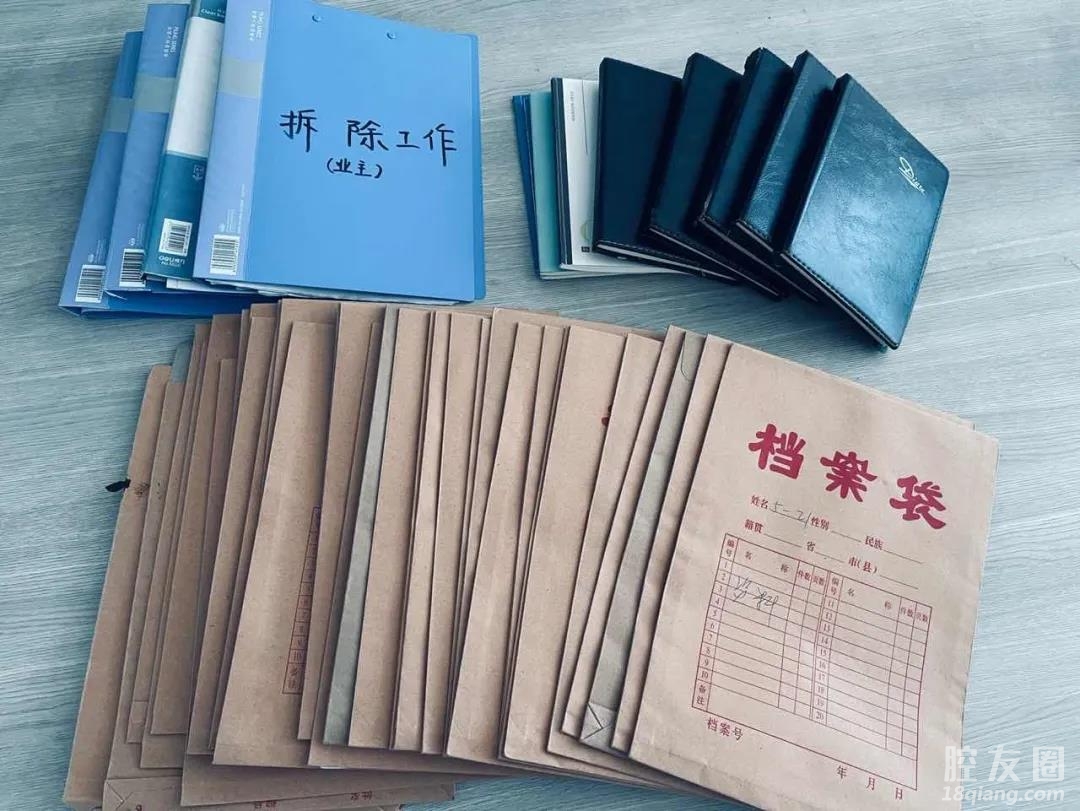 拆 除工作
(业主)
Diary
档案袋
姓名 5-21 性别
籍贯 省 市(县) 民族
编号 名 称 件数 页数 编号 名 称 件数 页数
1 11
2 资料 12
3 13
4 14
5 15
6 16
7 17
8 18
9 19
10 20
备注
档案号
年 月 日
腔友圈
18qiang.com